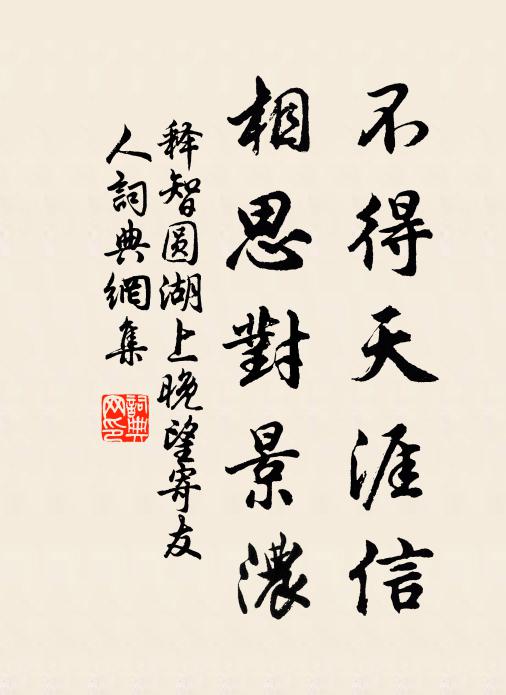 不得天涯信
相思對景濃
释智圆湖上晚望寄友
人詞典網集
詞典網印